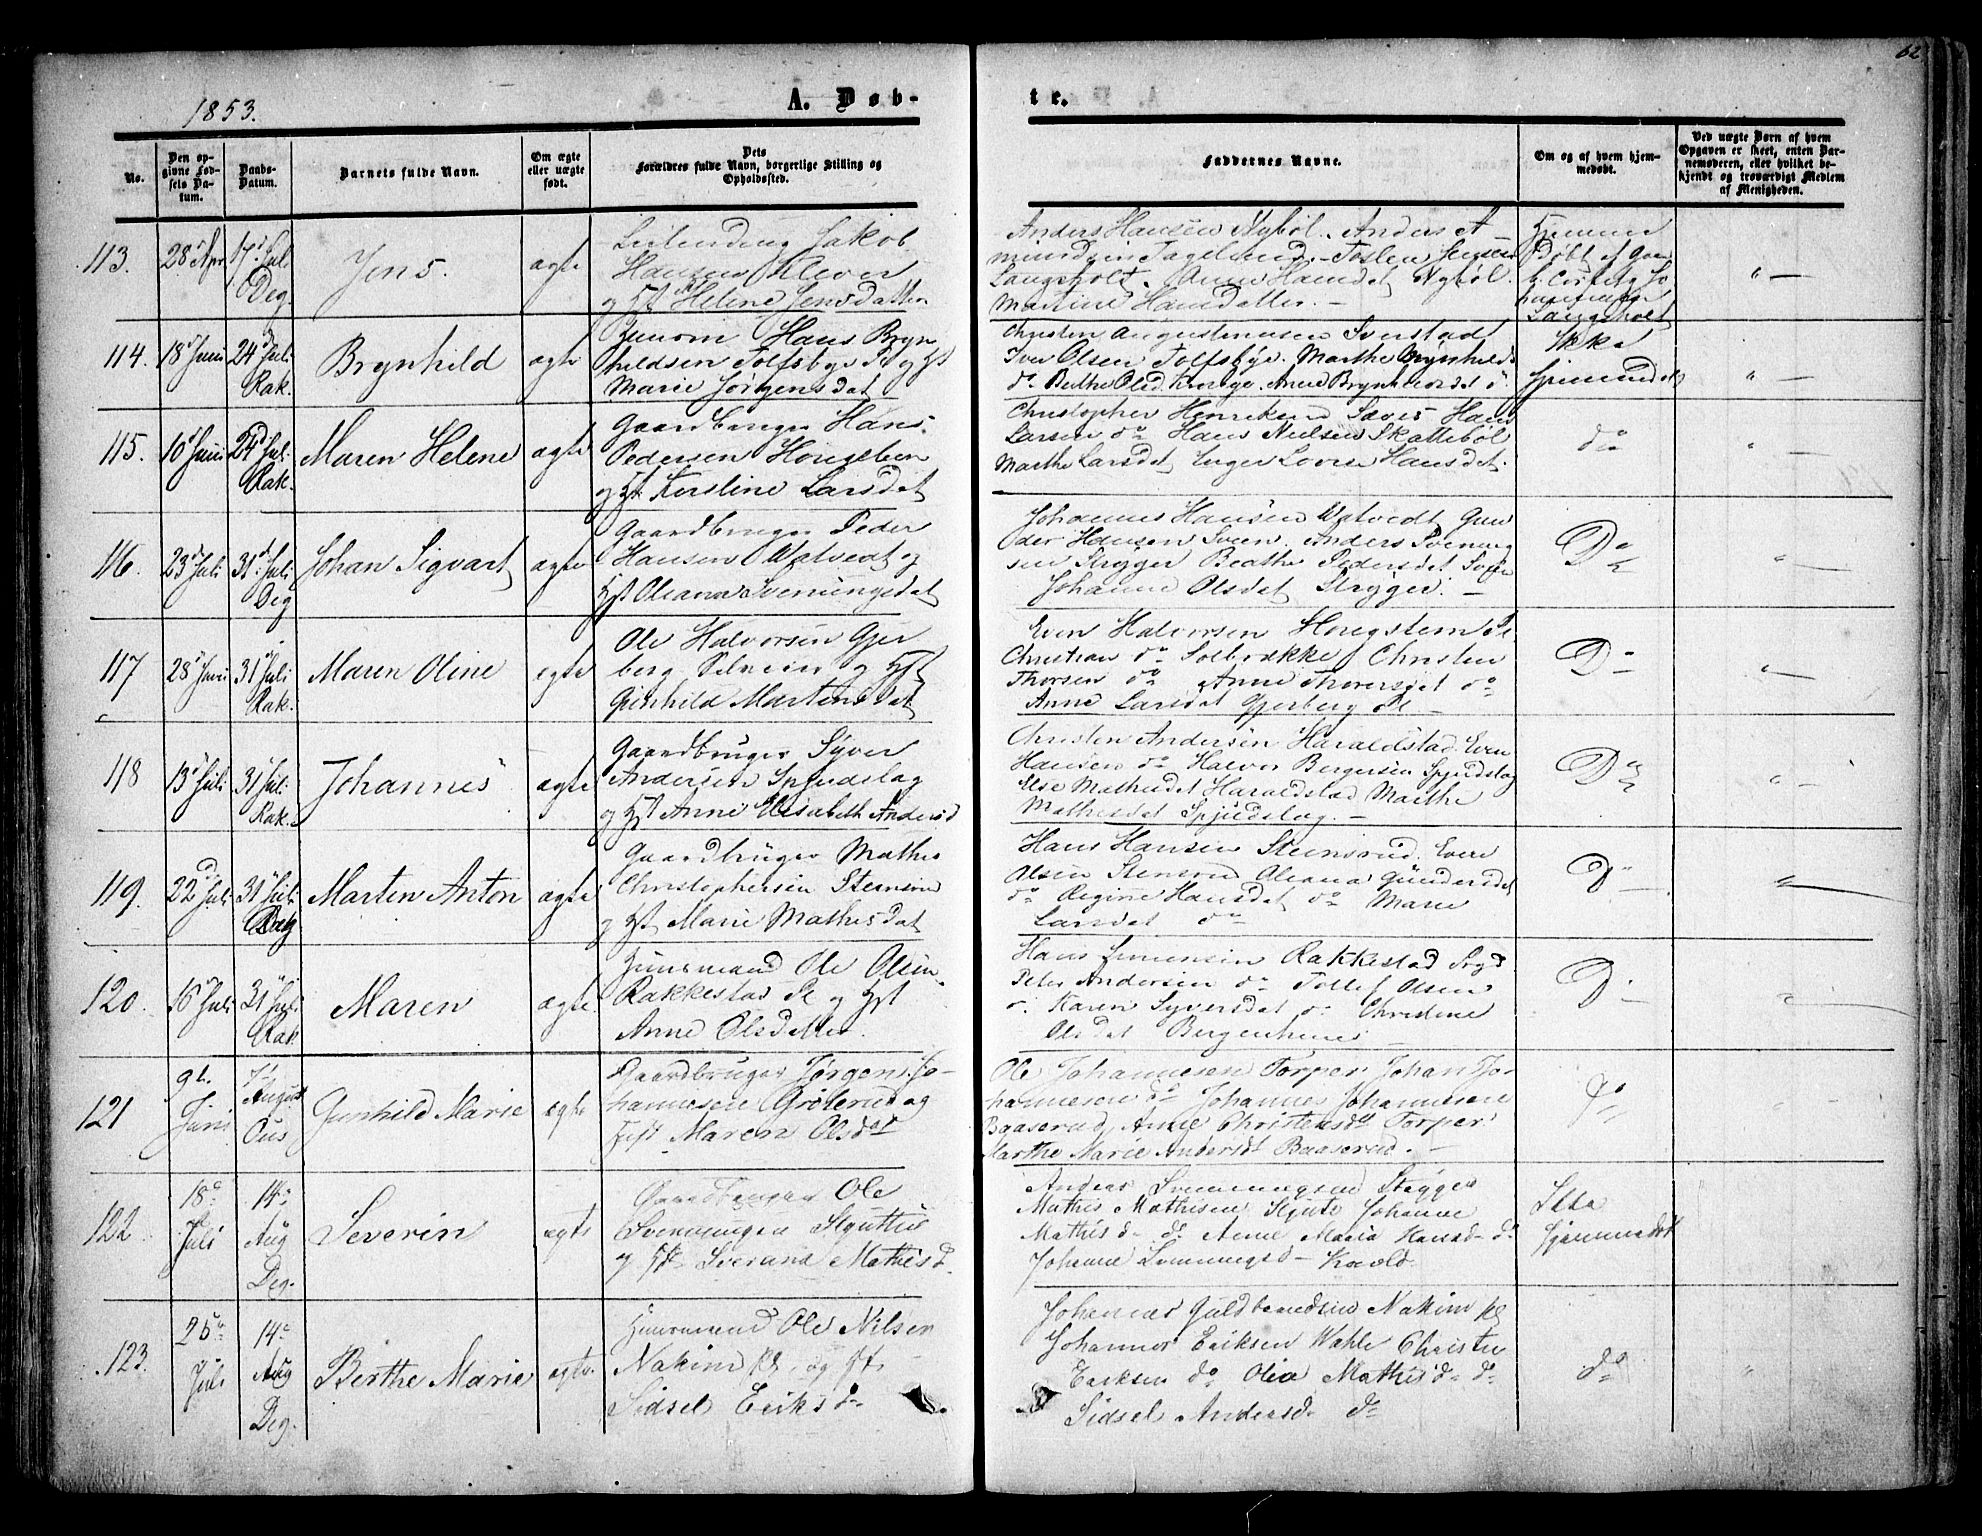 62
1853.
A. Døb-
te.
No.
Den op-
givne Fød-
sels Da-
tum.
Daabs-
Datum.
Barnets fulde Navn.
Om ægte
eller uægte
født.
Dets
Forældres fulde Navn, borgerlige Stilling og
Opholdssted.
Faddernes Navne.
Om og af hvem hjem-
medøbt.
Ved uægte Børn af hvem
Opgaven er skeet, enten Bar-
nemoderen, eller hvilket be-
kjendt og troværdigt Medlem
af Menigheden.
113.
28 Apr
17 Jul
Deg
Jens.
ægte
Leilending Jakob
Hansen Klever
og Hst Helene Jensdatter
Anders Hansen Nybøl. Anders A
Torsten Jensen
Langsholt. Anne Hansdt Nybøl.
Martine Hansdatter. -
Hjemme
Døbt af
Langsholt
" -
114.
18 Juni
24 Juli
Rak.
Brynhild
ægte
Huusm Hans Bryn
hildsen Tolfsbye Pl og Hst
Marie Jørgensdat
Christen Augustinusen Sverstad
Iver Olsen Tolfsbye. Marthe Brynhilds
do Berthe Olsd. Anne Brynhilds det do.
Ikke
hjemmedøbt
" -
115.
10 Juni
24 Jul.
Rak.
Maren Helene
ægte
Gaardbruger Hans
Pedersen Hougsteen
og Hst Kerstine Larsdat
Christopher Henriksen Sæves Hans
Larsen do Hans Nielsen Skattebøl
Marthe Larsdet Inger Lovise Hansdet.
do
" -
116.
23 Juli
31 Juli
Deg
Johan Sigvart
ægte
Gaardbruger Peder
Hansen Watvedt og
Hst Oleana Svenungsdat
Johannes Hansen Watvedt Gun
der Hansen Sveen. Anders Svenung
sen Stryger Beathe Pedersdet Sveen
Johanne Olsdet Stryger. -
Do
"
117
28 Juni
31 Juli
Rak.
Maren Oline
ægte
Ole Halvorsen Gjer
berg Pl og Hst
Gunhild Martensdat
Even Halvorsen Hougsteen Pl.
Christian do Solbrække Christen
Thorsen do Anne Thoresdet do
Anne Larsdat Gjerberg Pl -
Do
"
118
13 Juli
31 Juli.
Rak.
Johannes
ægte
Gaardbruger Syver
Andersen Spjudslag
og Hst Anne Elisabeth Andersd
Christen Andersen Haraldstad Even
Hansen do Halvor Bergersen Spjudslag
Else Mathisdet Haraldstad Marthe
Mathisdet Spjudslag. -
Do
" -
119.
22 Juli
31 Juli
Rak
Marten Anton
ægte
Gaardbruger Mathis
Christophersen Stensrud
og Hst Marie Mathisdat
Hans Hansen Steensrud. Even
Olsen Stensrud Oleana Gundersdet
do Regine Hansdet do Marie
Larsdet do
Do
"
120.
16 Juli
31 Juli
Rak
Maren
ægte
Huusmand Ole Olsen
Rakkestad Pl og Hst
Anne Olsdatter.
Hans Simensen Rakkestad
Peter Andersen do Tollef Olsen
do. Karen Syversdet do Christine
Olsdet Bergenhuus -
Do
"
121
9de
Juni
7de
August
Ous
Gunhild Marie
ægte
Gaardbruger Jørgen Jo-
hannesen Grøterud og
Hst Maren Olsdat
Ole Johannesen Torper Johan Jo-
hannesen do Johannes Johannesen
Baaserud, Anne Christensdt Torper
Marthe Marie Andersdt Baaserud. -
do
122.
18de
Juli
14de
Aug
Deg.
Severin
ægte
Gaardbruger Ole
Svenungsen Skjutte
og Hst Sverand Mathisd.
Anders Svenningsen Stryger
Mathis Mathisen Skjute Johanne
Mathisd - do Anne Maria Hansd - do
Johanne Svenningsd - Kavld.
Ikke
hjemmedøbt
123.
25de
Juli
14de
Aug
Deg.
Berthe Marie
ægte.
Huusmand Ole Nilsen
Nakim Pl og Hst
Sidsel Eriksd
Johannes Guldbrandsen Nakim Pl
Johannes Eriksen Wahle Christen
Eriksen do Olea Mathisd - do
Sidsel Andersd. do
do
"